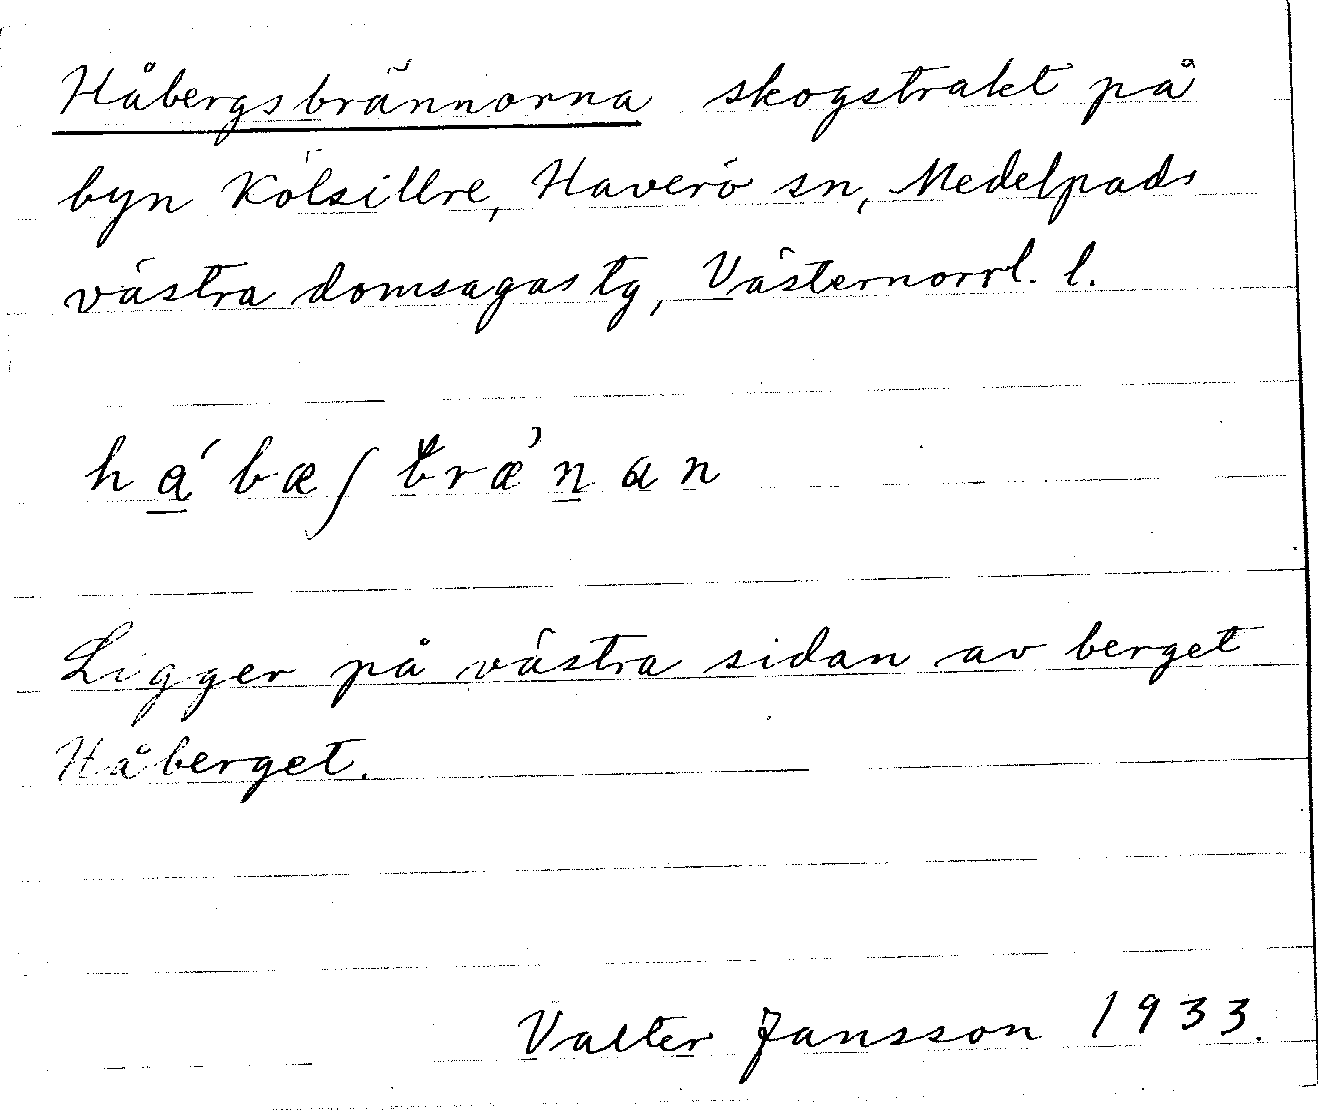 Håbergsbrännorna skogstrakt på
byn Kölsillre, Haverö sn, Medelpads
västra domsagas tg, Västernorrl. l.
ha̲´bæʃbræ̀n̲an
Ligger på västra sidan av berget
Håberget.
Valter Jansson 1933.